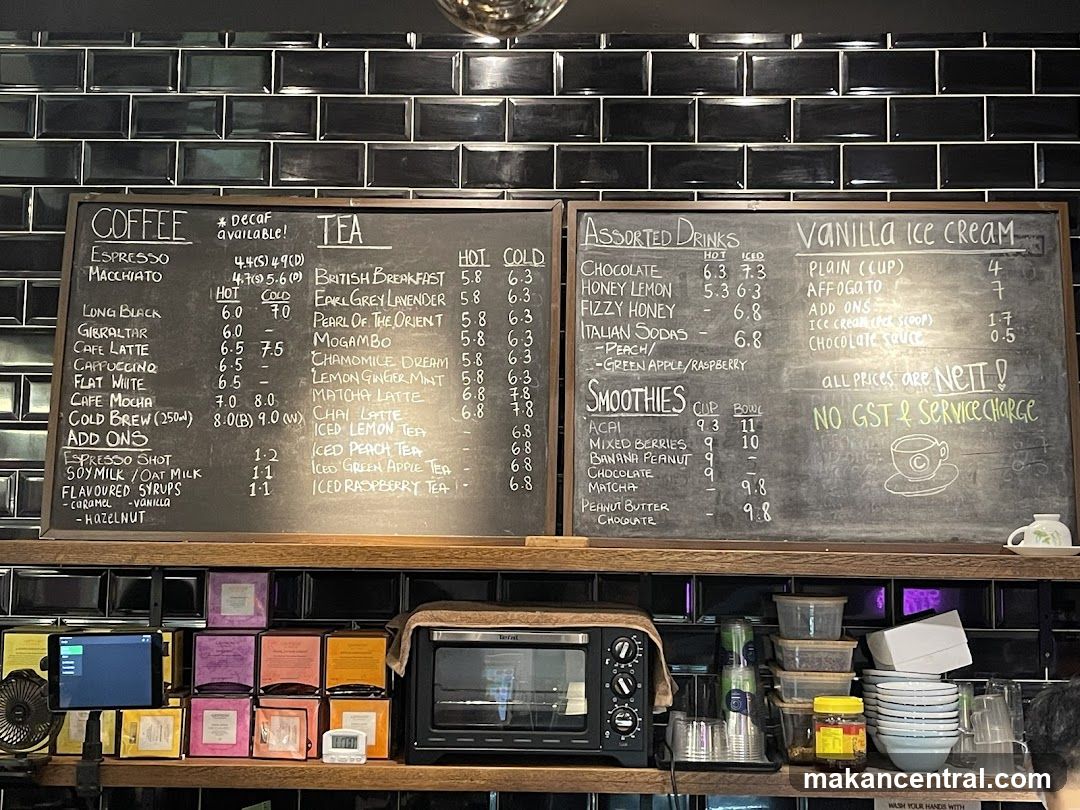 COFFEE
* Decaf available!
ESPRESSO 4.4(S) 4.9(D)
MACCHIATO 4.7(S) 5.6(D)
HOT COLD
LONG BLACK 6.0 7.0
GIBRALTAR 6.0 -
CAFE LATTE 6.5 7.5
CAPPUCCINO 6.5 -
FLAT WHITE 6.5 -
CAFE MOCHA 7.0 8.0
COLD BREW (250ml) 8.0(B) 9.0(W)
ADD ONS
ESPRESSO SHOT 1.2
SOY MILK / OAT MILK 1.1
FLAVOURED SYRUPS 1.1
- CARAMEL - VANILLA
- HAZELNUT
TEA
HOT COLD
BRITISH BREAKFAST 5.8 6.3
EARL GREY LAVENDER 5.8 6.3
PEARL OF THE ORIENT 5.8 6.3
MOGAMBO 5.8 6.3
CHAMOMILE DREAM 5.8 6.3
LEMON GINGER MINT 5.8 6.3
MATCHA LATTE 6.8 7.8
CHAI LATTE 6.8 7.8
ICED LEMON TEA - 6.8
ICED PEACH TEA - 6.8
ICED GREEN APPLE TEA - 6.8
ICED RASPBERRY TEA - 6.8
ASSORTED DRINKS
HOT ICED
CHOCOLATE 6.3 7.3
HONEY LEMON 5.3 6.3
FIZZY HONEY - 6.8
ITALIAN SODAS - 6.8
- PEACH/
- GREEN APPLE/RASPBERRY
SMOOTHIES CUP BOWL
ACAI 9.3 11
MIXED BERRIES 9 10
BANANA PEANUT 9 -
CHOCOLATE 9 -
MATCHA - 9.8
PEANUT BUTTER CHOCOLATE - 9.8
VANILLA ICE CREAM
PLAIN (CUP) 4
AFFOGATO 7
ADD ONS
ICE CREAM (PER SCOOP) 1.7
CHOCOLATE SAUCE 0.5
ALL PRICES ARE NETT!
NO GST & SERVICE CHARGE
Tefal
makancentral.com
WASH YOUR HANDS WITH